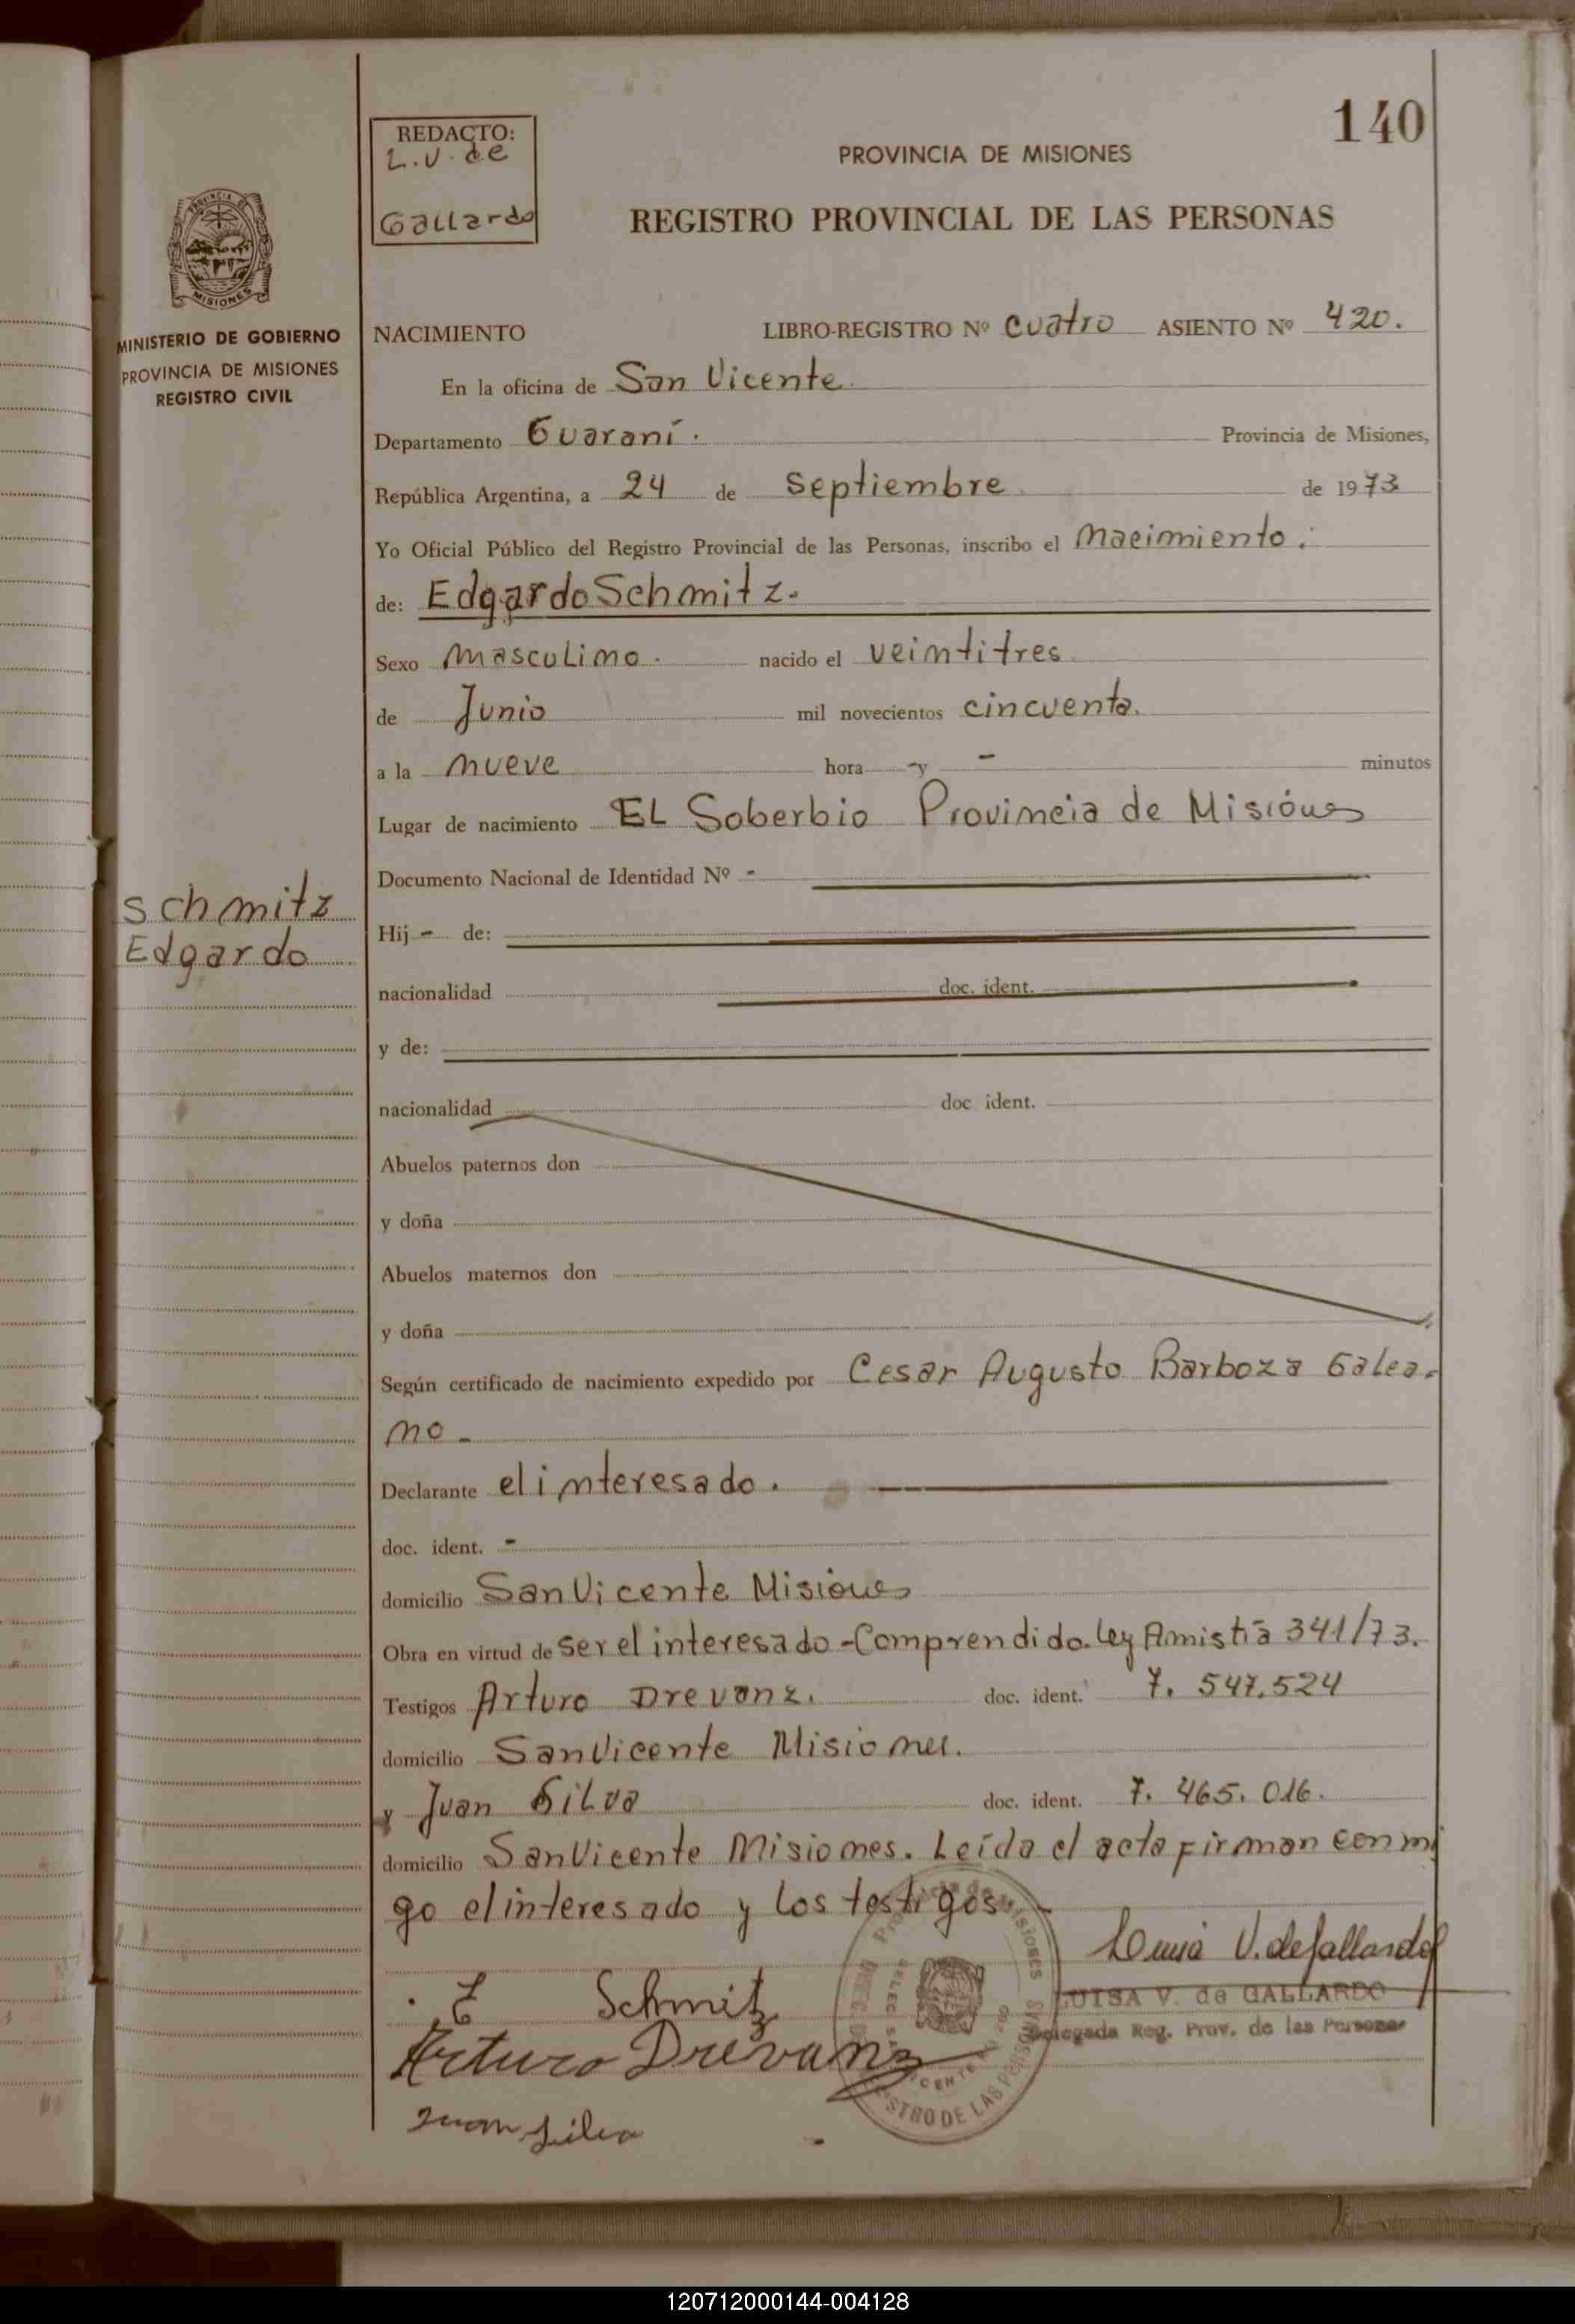 140
REDACTO:
L.V. de
Gallardo
PROVINCIA DE MISIONES
REGISTRO PROVINCIAL DE LAS PERSONAS
PROVINCIA DE
MISIONES
MINISTERIO DE GOBIERNO
PROVINCIA DE MISIONES
REGISTRO CIVIL
Schmitz
Edgardo
NACIMIENTO LIBRO-REGISTRO Nº cuatro ASIENTO Nº 420.
En la oficina de San Vicente.
Departamento Guaraní. Provincia de Misiones,
República Argentina, a 24 de Septiembre de 1973
Yo Oficial Público del Registro Provincial de las Personas, inscribo el Nacimiento.
de: Edgardo Schmitz.
Sexo masculino. nacido el veintitres
de Junio mil novecientos cincuenta.
a la nueve hora - y - minutos
Lugar de nacimiento EL Soberbio Provincia de Misiones
Documento Nacional de Identidad Nº -
Hij - de:
nacionalidad doc. ident.
y de:
nacionalidad doc ident.
Abuelos paternos don
y doña
Abuelos maternos don
y doña
Según certificado de nacimiento expedido por Cesar Augusto Barboza Galea-
no-
Declarante el interesado.
doc. ident. -
domicilio San Vicente Misiones
Obra en virtud de ser el interesado - Comprendido. Ley Amistia 341/73.
Testigos Arturo Drevanz. doc. ident. 7.547.524
domicilio San Vicente Misiones.
y Juan Silva doc. ident. 7.465.016.
domicilio San Vicente Misiones. Leída el acta firman conmi
go el interesado y los testigos
Luisa V. de Gallardo
LUISA V. de GALLARDO
Delegada Reg. Prov. de las Personas
E Schmitz
Arturo Drevanz
Juan Silva
120712000144-004128